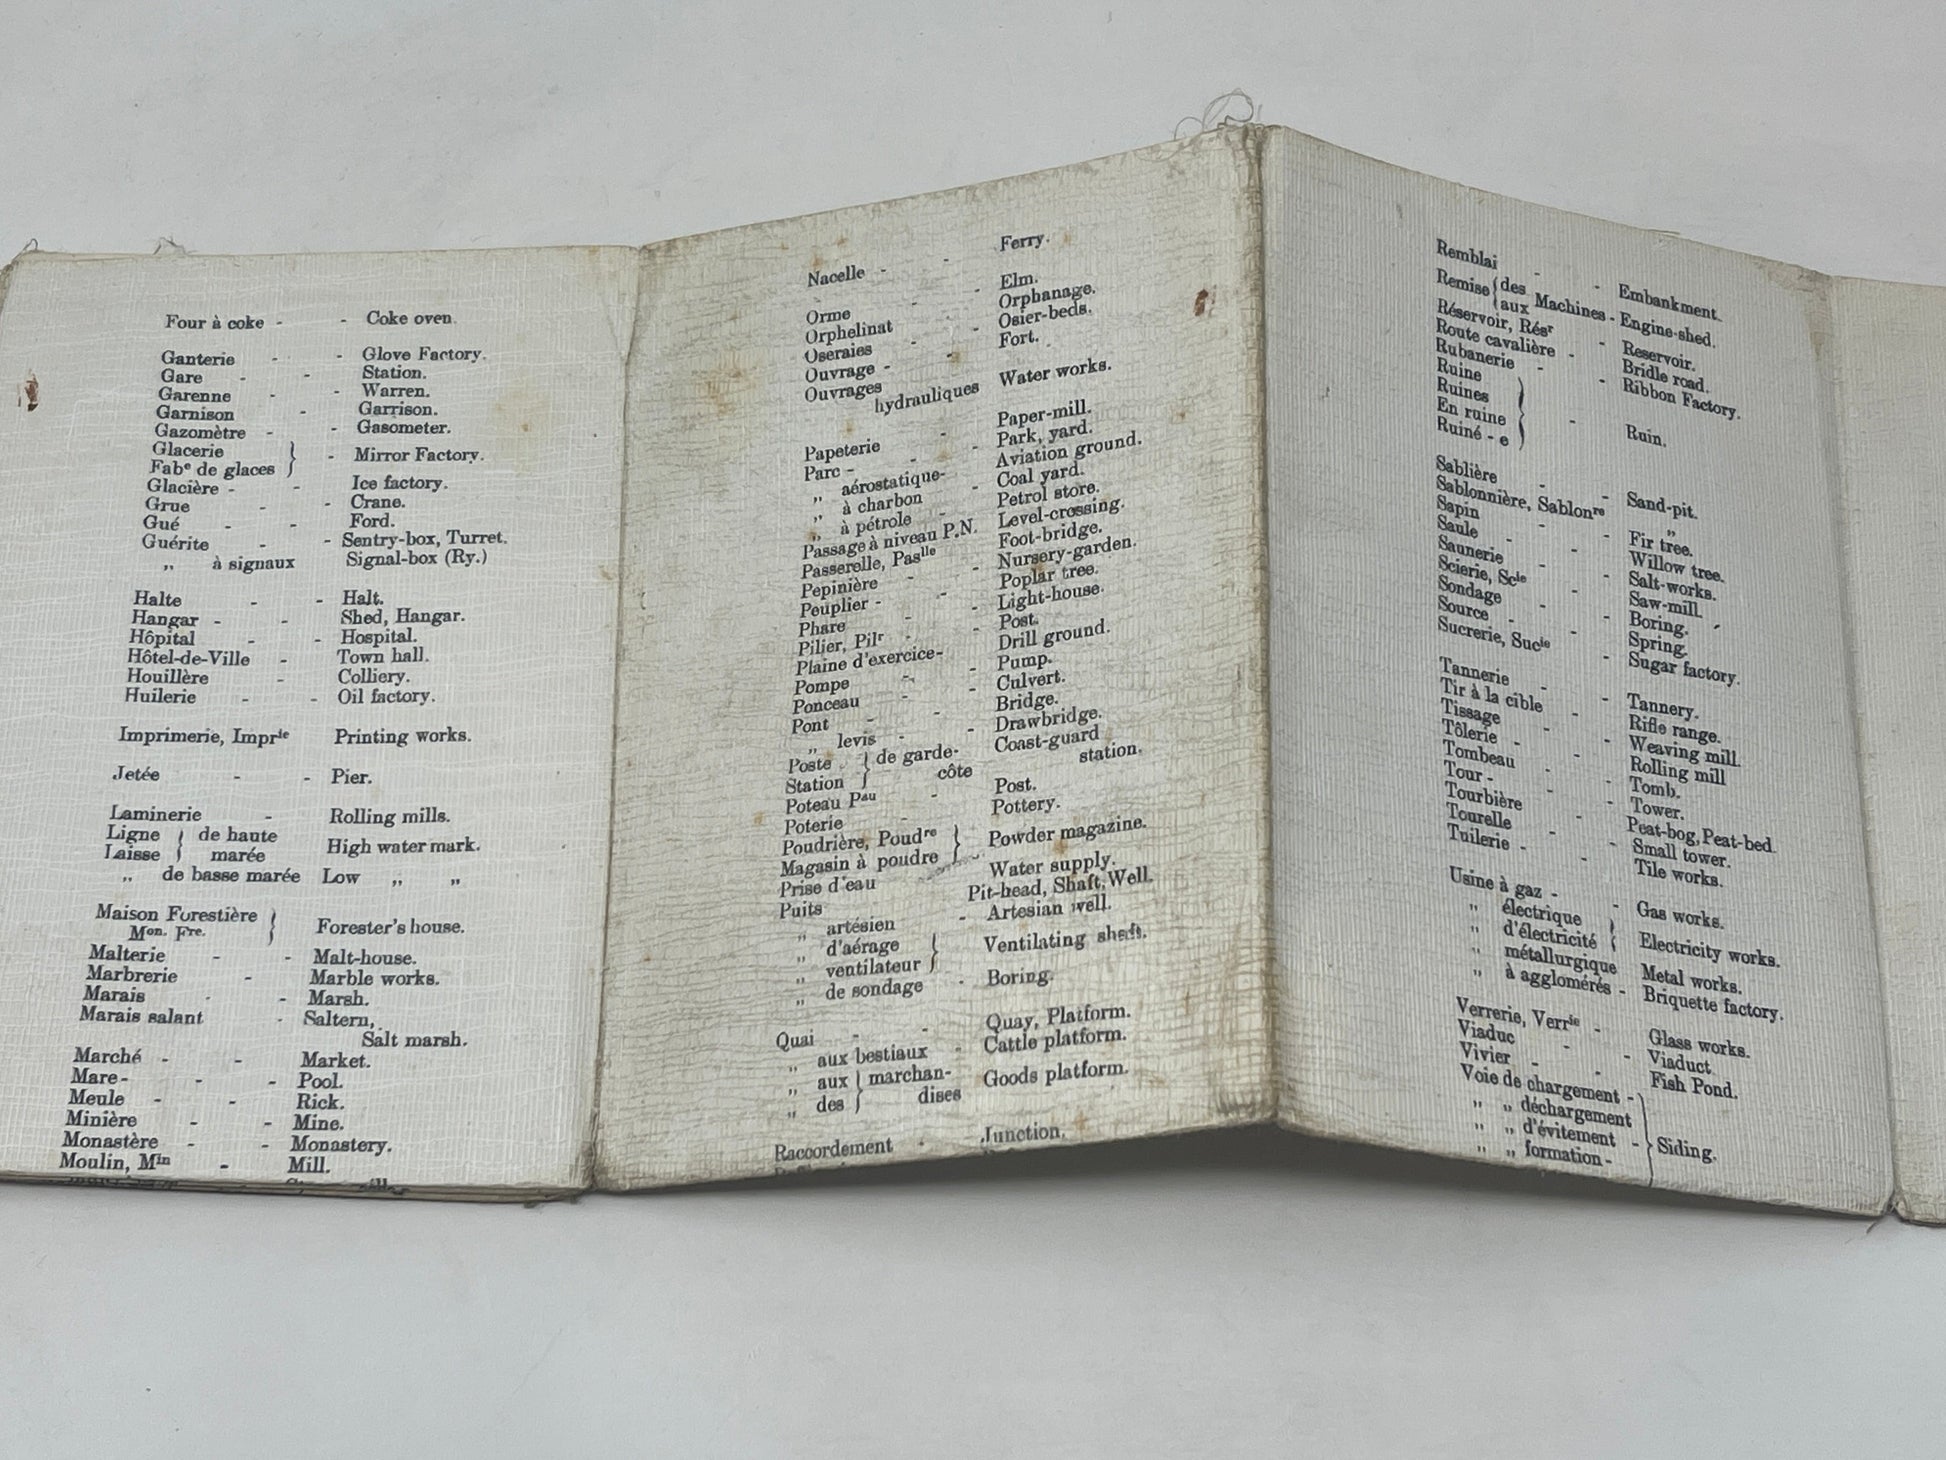 Four à coke - - Coke oven.
Ganterie - - Glove Factory.
Gare - - Station.
Garenne - - Warren.
Garnison - Garrison.
Gazomètre - - Gasometer.
Glacerie
Fabᵉ de glaces } - Mirror Factory.
Glacière - - Ice factory.
Grue - - Crane.
Gué - - Ford.
Guérite - - Sentry-box, Turret.
„ à signaux Signal-box (Ry.)
Halte - - Halt.
Hangar - - Shed, Hangar.
Hôpital - - Hospital.
Hôtel-de-Ville - Town hall.
Houillère - Colliery.
Huilerie - - Oil factory.
Imprimerie, Imprⁱᵉ Printing works.
Jetée - - Pier.
Laminerie - Rolling mills.
Ligne } de haute
Laisse } marée High water mark.
„ de basse marée Low „ „
Maison Forestière
Mᵒⁿ. Fʳᵉ. } Forester's house.
Malterie - - Malt-house.
Marbrerie - Marble works.
Marais - - Marsh.
Marais salant - Saltern,
Salt marsh.
Marché - - Market.
Mare - - - Pool.
Meule - - Rick.
Minière - - Mine.
Monastère - - Monastery.
Moulin, Mⁱⁿ - Mill.
Nacelle - - Ferry.
Orme - - Elm.
Orphelinat - Orphanage.
Oseraies - - Osier-beds.
Ouvrage - - Fort.
Ouvrages
hydrauliques Water works.
Papeterie - Paper-mill.
Parc - - - Park, yard.
„ aérostatique- Aviation ground.
„ à charbon - Coal yard.
„ à pétrole - Petrol store.
Passage à niveau P.N. Level-crossing.
Passerelle, Pasˡˡᵉ Foot-bridge.
Pepinière - - Nursery-garden.
Peuplier - - Poplar tree.
Phare - - Light-house.
Pilier, Pilʳ - - Post.
Plaine d'exercice- Drill ground.
Pompe - - Pump.
Ponceau - - Culvert.
Pont - - Bridge.
„ levis - - Drawbridge.
Poste } de garde- Coast-guard
Station } côte station.
Poteau Pᵃᵘ - Post.
Poterie - Pottery.
Poudrière, Poudʳᵉ
Magasin à poudre } - Powder magazine.
Prise d'eau - Water supply.
Puits Pit-head, Shaft, Well.
„ artésien - Artesian well.
„ d'aérage
„ ventilateur } Ventilating shaft.
„ de sondage - Boring.
Quai - - Quay, Platform.
„ aux bestiaux - Cattle platform.
„ aux } marchan-
„ des } dises Goods platform.
Raccordement - Junction.
Remblai - - Embankment.
Remise { des
aux Machines - Engine-shed.
Réservoir, Résʳ - Reservoir.
Route cavalière - Bridle road.
Rubanerie - - Ribbon Factory.
Ruine
Ruines
En ruine
Ruiné - e } - Ruin.
Sablière - - Sand-pit.
Sablonnière, Sablonʳᵉ „
Sapin - - Fir tree.
Saule - - Willow tree.
Saunerie - - Salt-works.
Scierie, Scⁱᵉ - Saw-mill.
Sondage - - Boring.
Source - - Spring.
Sucrerie, Sucⁱᵉ - Sugar factory.
Tannerie - - Tannery.
Tir à la cible - Rifle range.
Tissage - - Weaving mill.
Tôlerie - - Rolling mill
Tombeau - - Tomb.
Tour - - - Tower.
Tourbière - Peat-bog, Peat-bed.
Tourelle - - Small tower.
Tuilerie - - Tile works.
Usine à gaz - - Gas works.
„ électrique
„ d'électricité } Electricity works.
„ métallurgique Metal works.
„ à agglomérés - Briquette factory.
Verrerie, Verrⁱᵉ - Glass works.
Viaduc - - Viaduct.
Vivier - - Fish Pond.
Voie de chargement -
„ „ déchargement
„ „ d'évitement -
„ „ formation - } Siding.